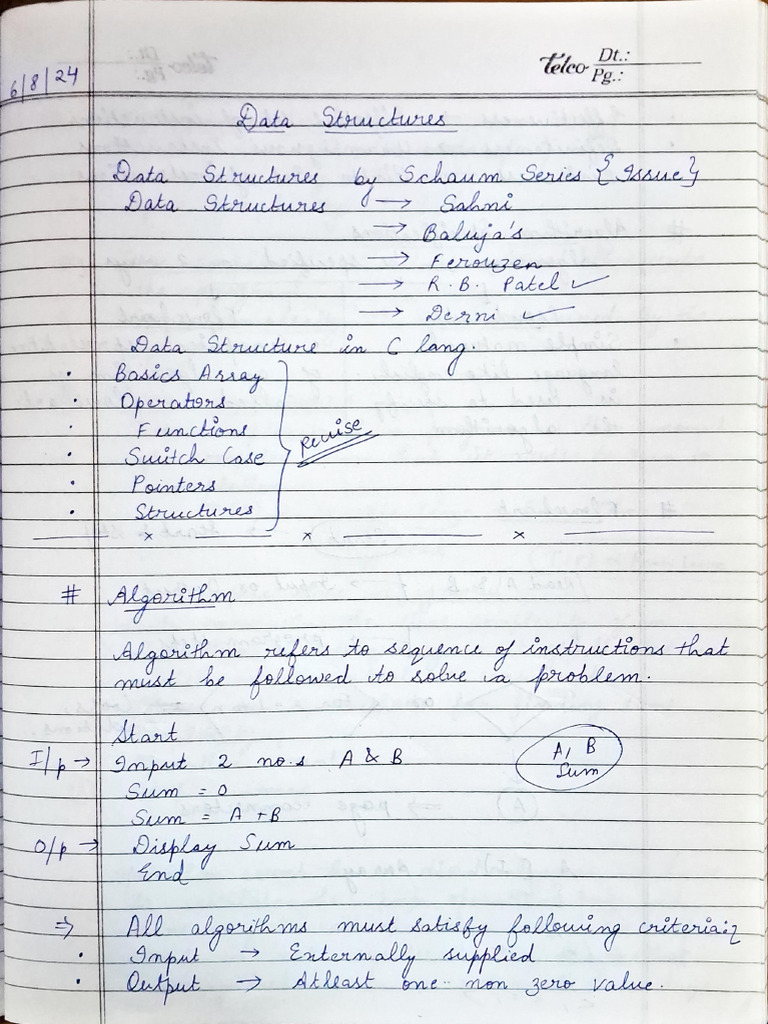 Telco Dt.:
Pg.:
6/8/24
Data Structures
Data Structures by Schaum Series {Issue}
Data Structures → Sahni
→ Baluja's
→ Ferouzen
→ R. B. Patel ✓
→ Derni ✓
Data Structure in C lang.
• Basics Array
• Operators
• Functions
• Switch Case
• Pointers
• Structures
revise
x x x
# Algorithm
Algorithm refers to sequence of instructions that
must be followed to solve a problem.
Start
I/p → Input 2 no.s A & B
Sum = 0
Sum = A + B
O/p → Display Sum
End
A, B
Sum
⇒ All algorithms must satisfy following criteria:
• Input → Externally supplied
• Output → Atleast one non zero value.